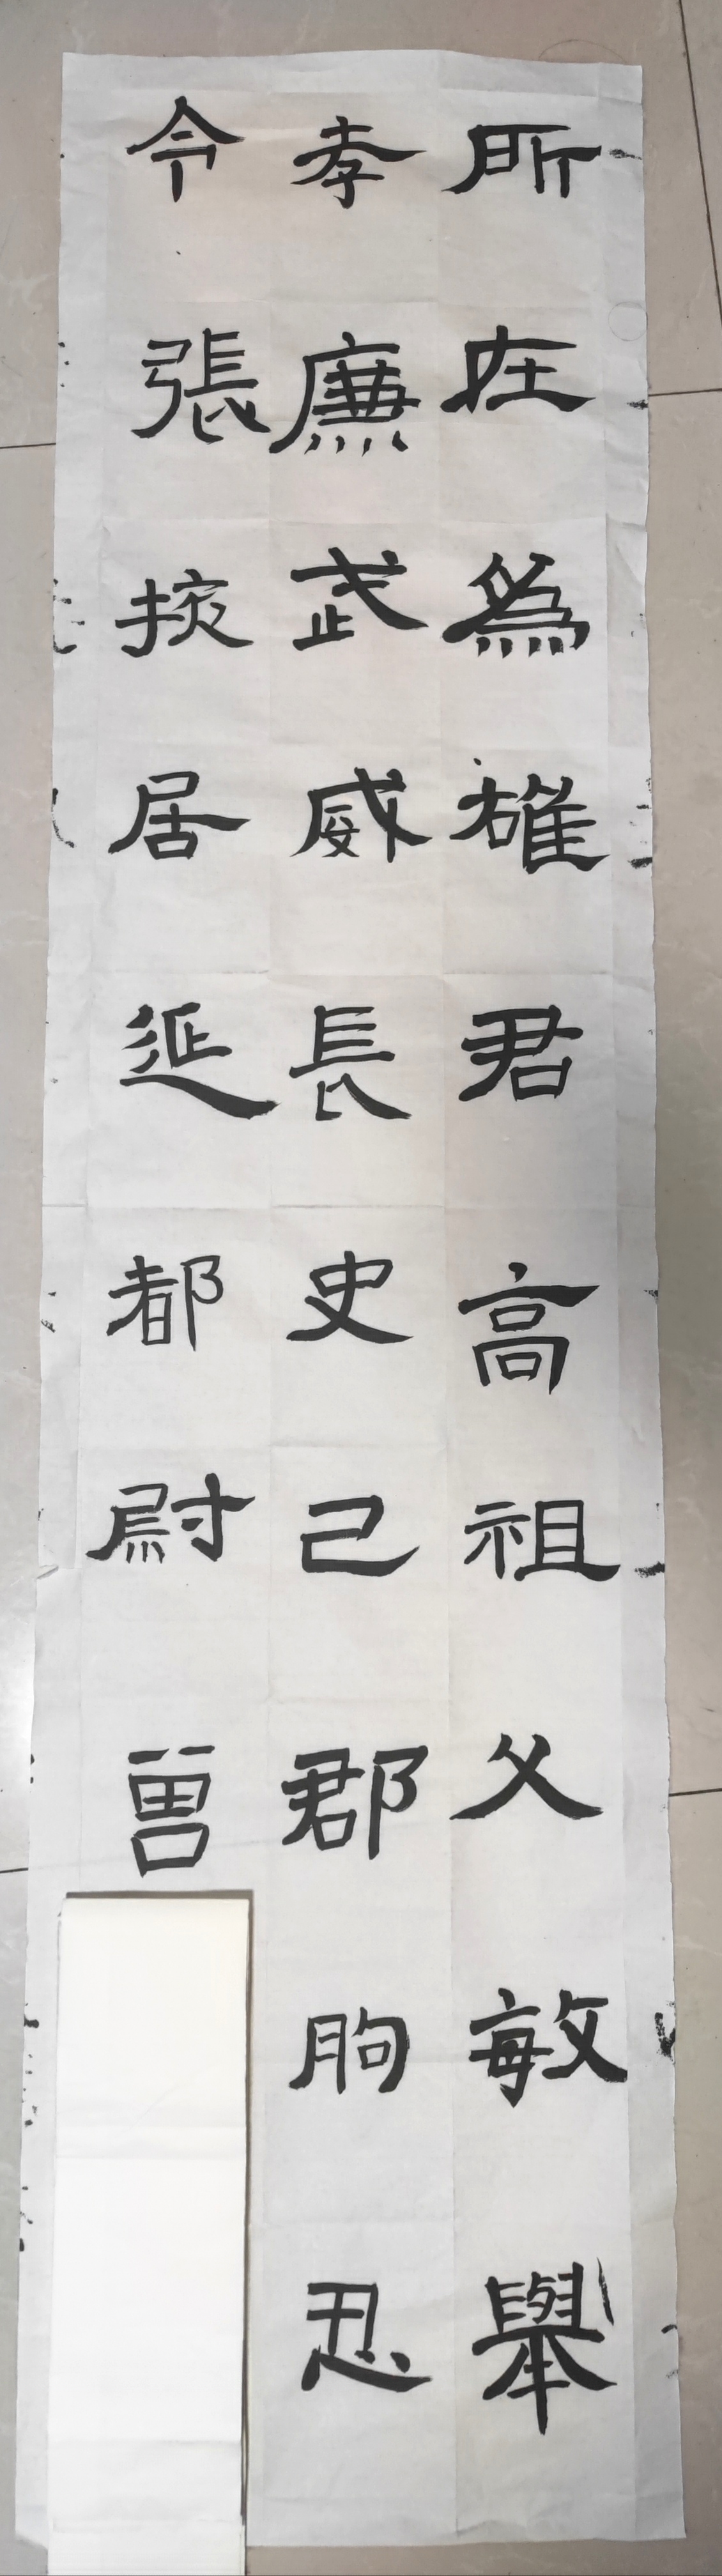 所在為雄君高祖父敏舉
孝廉武威長史巴郡朐忍
令張掖居延都尉曾